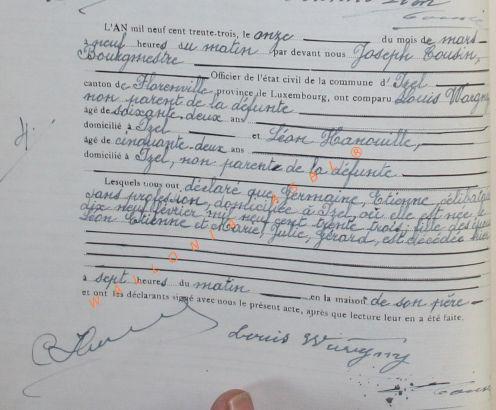 L'AN mil neuf cent trente-trois, le onze du mois de mars
à neuf heures du matin par devant nous Joseph Cousin,
Bourgmestre
Officier de l'état civil de la commune d'Izel
canton de Florenville, province de Luxembourg, ont comparu Louis Warigny
non parent de la défunte
âgé de soixante-deux ans
domicilié à Izel et Léon Hanouille,
âgé de cinquante-deux ans
domicilié à Izel, non parent de la défunte
Lesquels nous ont déclaré que Germaine, Etienne, célibataire
sans profession, domiciliée à Izel, où elle est née le
dix neuf février mil neuf cent trente trois; fille des époux
Léon Etienne et Marie, Julie, Gérard, est décédée hier
à sept heures du matin en la maison de son père
et ont les déclarants signé avec nous le présent acte, après que lecture leur en a été faite.
WALLONIA ASBL
Louis Warigny